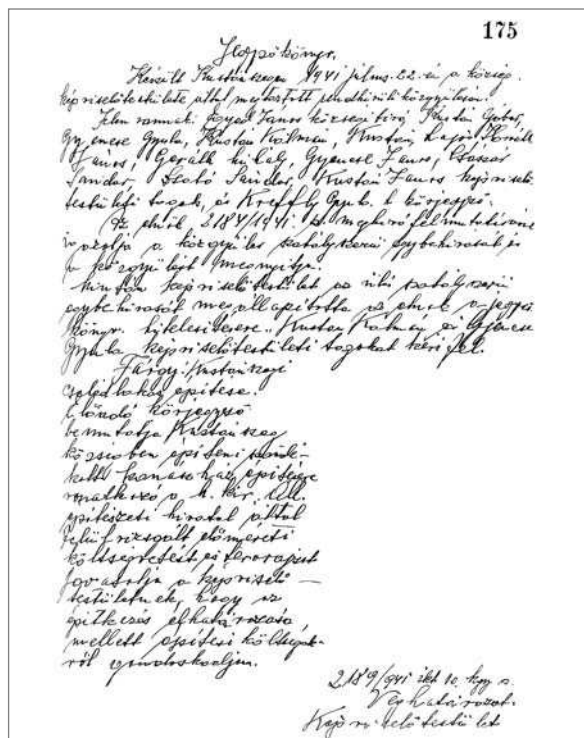 175
Jegyzőkönyv.
Készült Kustánszegen 1941 július 22-én a község
képviselőtestülete által megtartott rendkívüli közgyűlésen.
Jelen vannak: János községi bíró, Kustán Gábor,
Gyenese Gyula, Kustán Kálmán, Kustán Lajos,
János, Mihály, Gyenese János, Császár
Sándor, Szabó Sándor, Kustán János képviselő-
testületi tagok, és Gyula h. körjegyző.
Az elnök 2184/1941. sz. meghívó felmutatásával
igazolja a közgyűlés szabályszerű egybehívását és
a közgyűlést megnyitja.
Miután képviselőtestület az ülés szabályszerű
egybehívását megállapította az elnök a jegyző-
könyv hitelesítésére Kustán Kálmán és Gyenese
Gyula képviselőtestületi tagokat kéri fel.
Tárgy: Kustánszegi
családi lakás építése.
Előadó körjegyző
bemutatja Kustánszeg
községben építeni szándé-
kolt építésére
vonatkozó a m. kir. áll.
építészeti hivatal által
felülvizsgált előméreti
költségvetést, és tervrajzot
javasolja a képviselő-
testületnek, hogy az
építkezés elhatározása
mellett építési költségek-
ről gondoskodjon.
2189/941 ikt 10. kgy. sz.
Véghatározat.
Képviselőtestület